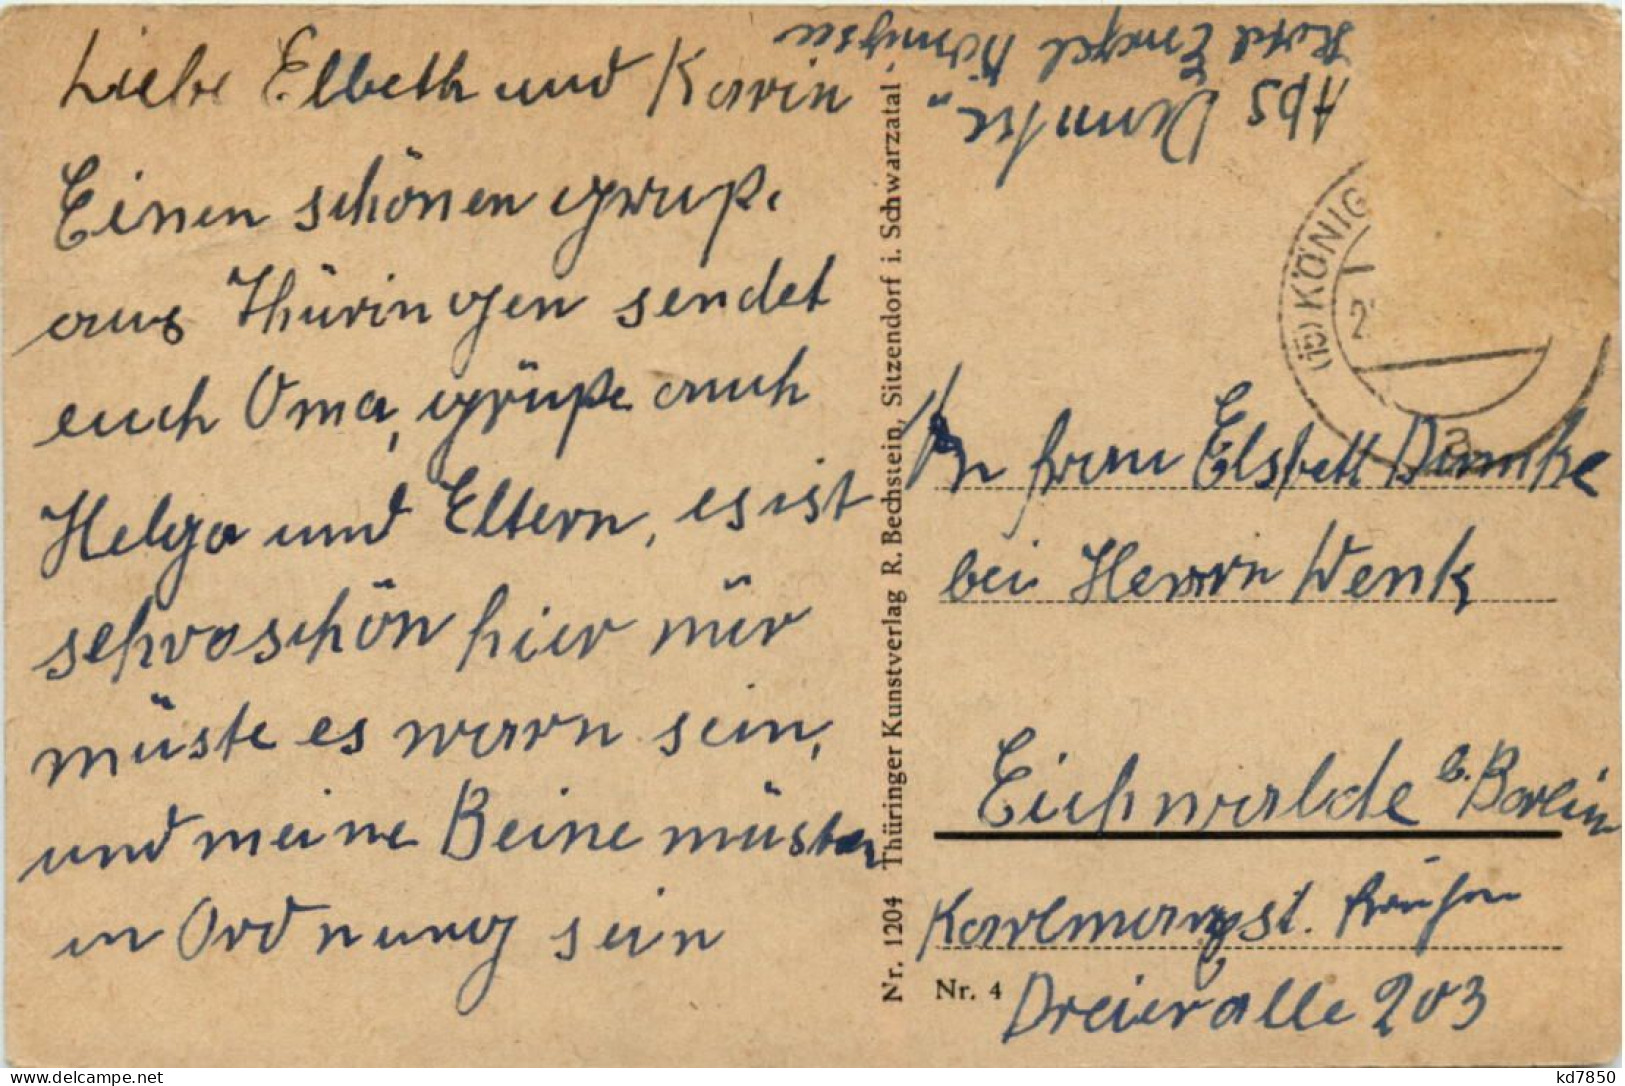 Liebe Elbeth und Karin
Einen schönen gruß.
aus Thüringen sendet
euch Oma, grüße auch
Helga und Eltern, es ist
sehr schön hier nür
müste es warn sein,
und meine Beine müsten
in Ordnung sein
Nr. 1204 Thüringer Kunstverlag R. Bechstein, Sitzendorf i. Schwarzatal
Abs Dumke
Königsee
(15) KÖNIG
2
a
An frau Elsbett Dumke
bei Herrn Wenk
Eichwalde b. Berlin
Karlmarxst. früher
Nr. 4
Dreieralle 203
kd7850